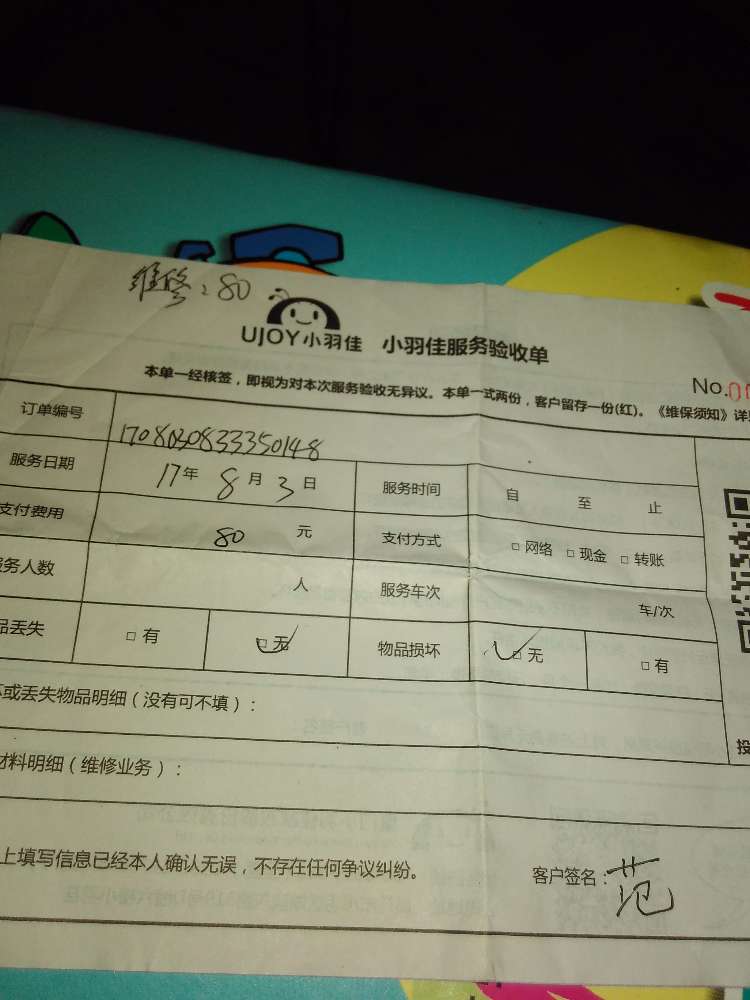 维修：80
UJOY小羽佳 小羽佳服务验收单
No.00
本单一经核签，即视为对本次服务验收无异议。本单一式两份，客户留存一份(红)。《维保须知》详
订单编号 1708030833350148
服务日期 17年 8月 3日 服务时间 自 至 止
支付费用 80 元 支付方式 □网络 □现金 □转账
务人数 人 服务车次 车/次
品丢失 □有 □无 物品损坏 □无 □有
或丢失物品明细（没有可不填）：
材料明细（维修业务）：
投
上填写信息已经本人确认无误，不存在任何争议纠纷。 客户签名：范